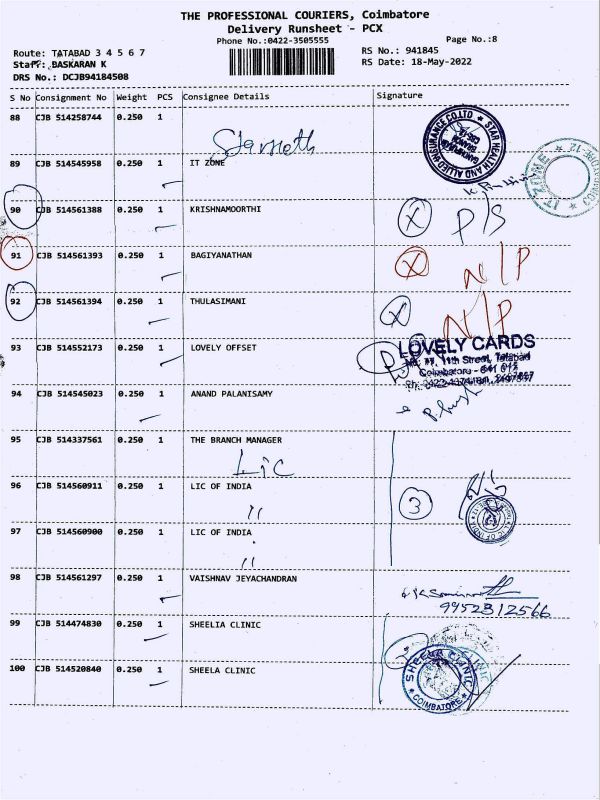 THE PROFESSIONAL COURIERS, Coimbatore
Delivery Runsheet - PCX
Phone No.:0422-3505555
Page No.:8
Route: TATABAD 3 4 5 6 7
RS No.: 941845
Staff: BASKARAN K
RS Date: 18-May-2022
DRS No.: DCJB94184508
S No Consignment No Weight PCS Consignee Details Signature
88 CJB 514258744 0.250 1
STAR HEALTH AND ALLIED INSURANCE CO.LTD
89 CJB 514545958 0.250 1 IT ZONE
IT ZONE
90 CJB 514561388 0.250 1 KRISHNAMOORTHI
X P/S
91 CJB 514561393 0.250 1 BAGIYANATHAN
X N/P
92 CJB 514561394 0.250 1 THULASIMANI
X N/P
93 CJB 514552173 0.250 1 LOVELY OFFSET
LOVELY CARDS
11th Street, Tatabad
94 CJB 514545023 0.250 1 ANAND PALANISAMY
95 CJB 514337561 0.250 1 THE BRANCH MANAGER
LIC
96 CJB 514560911 0.250 1 LIC OF INDIA
3
LIC OF INDIA
97 CJB 514560900 0.250 1 LIC OF INDIA
98 CJB 514561297 0.250 1 VAISHNAV JEYACHANDRAN
9952312566
99 CJB 514474830 0.250 1 SHEELIA CLINIC
100 CJB 514520840 0.250 1 SHEELA CLINIC
SHEELA CLINIC
COIMBATORE